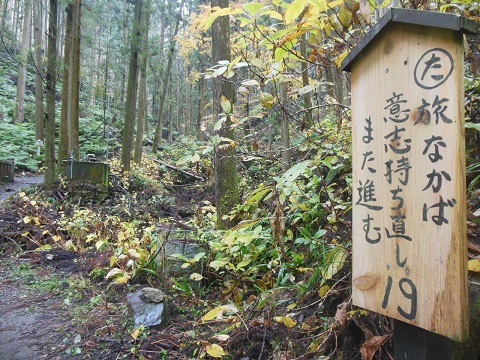 た
旅なかば
意志持ち直し
また進む
19